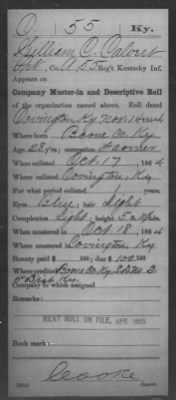 C 55 Ky.
William C. Calvert
Pvt., Co. A, 55 Reg't Kentucky Inf.
Appears on
Company Muster-in and Descriptive Roll
of the organization named above. Roll dated
Covington, Ky. Nov. 186
Where born Boone Co. Ky.
Age, 22 y'rs; occupation Farmer
When enlisted Oct. 17, 1864
Where enlisted Covington, Ky
For what period enlisted years.
Eyes Blue; hair Light
Complexion Light; height 5 ft. in.
When mustered in Oct 18, 1864
Where mustered in Covington, Ky
Bounty paid $ 100; due $ 100
Where credited Boone Co. Ky.
Company to which assigned
Remarks:
Book mark:
Cooke
Copyist.